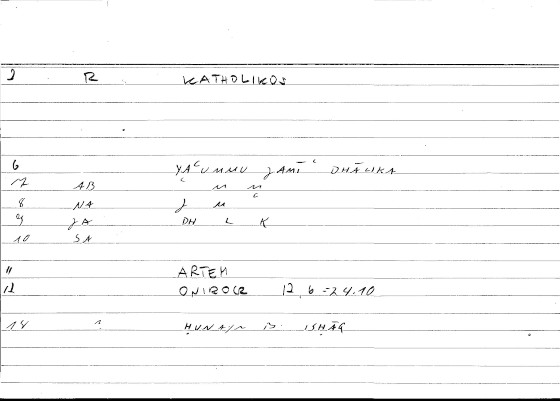 2 R KATHOLIKOS
6 YAʿUMMU JAMĪʿ DHĀLIKA
7 AB ʿ M M
8 NA J M ʿ
9 JA DH L K
10 SA
11 ARTEM
12 ONIROCR 12, 6 - 24.10
14 1 ḤUNAYN B. ISḤĀQ